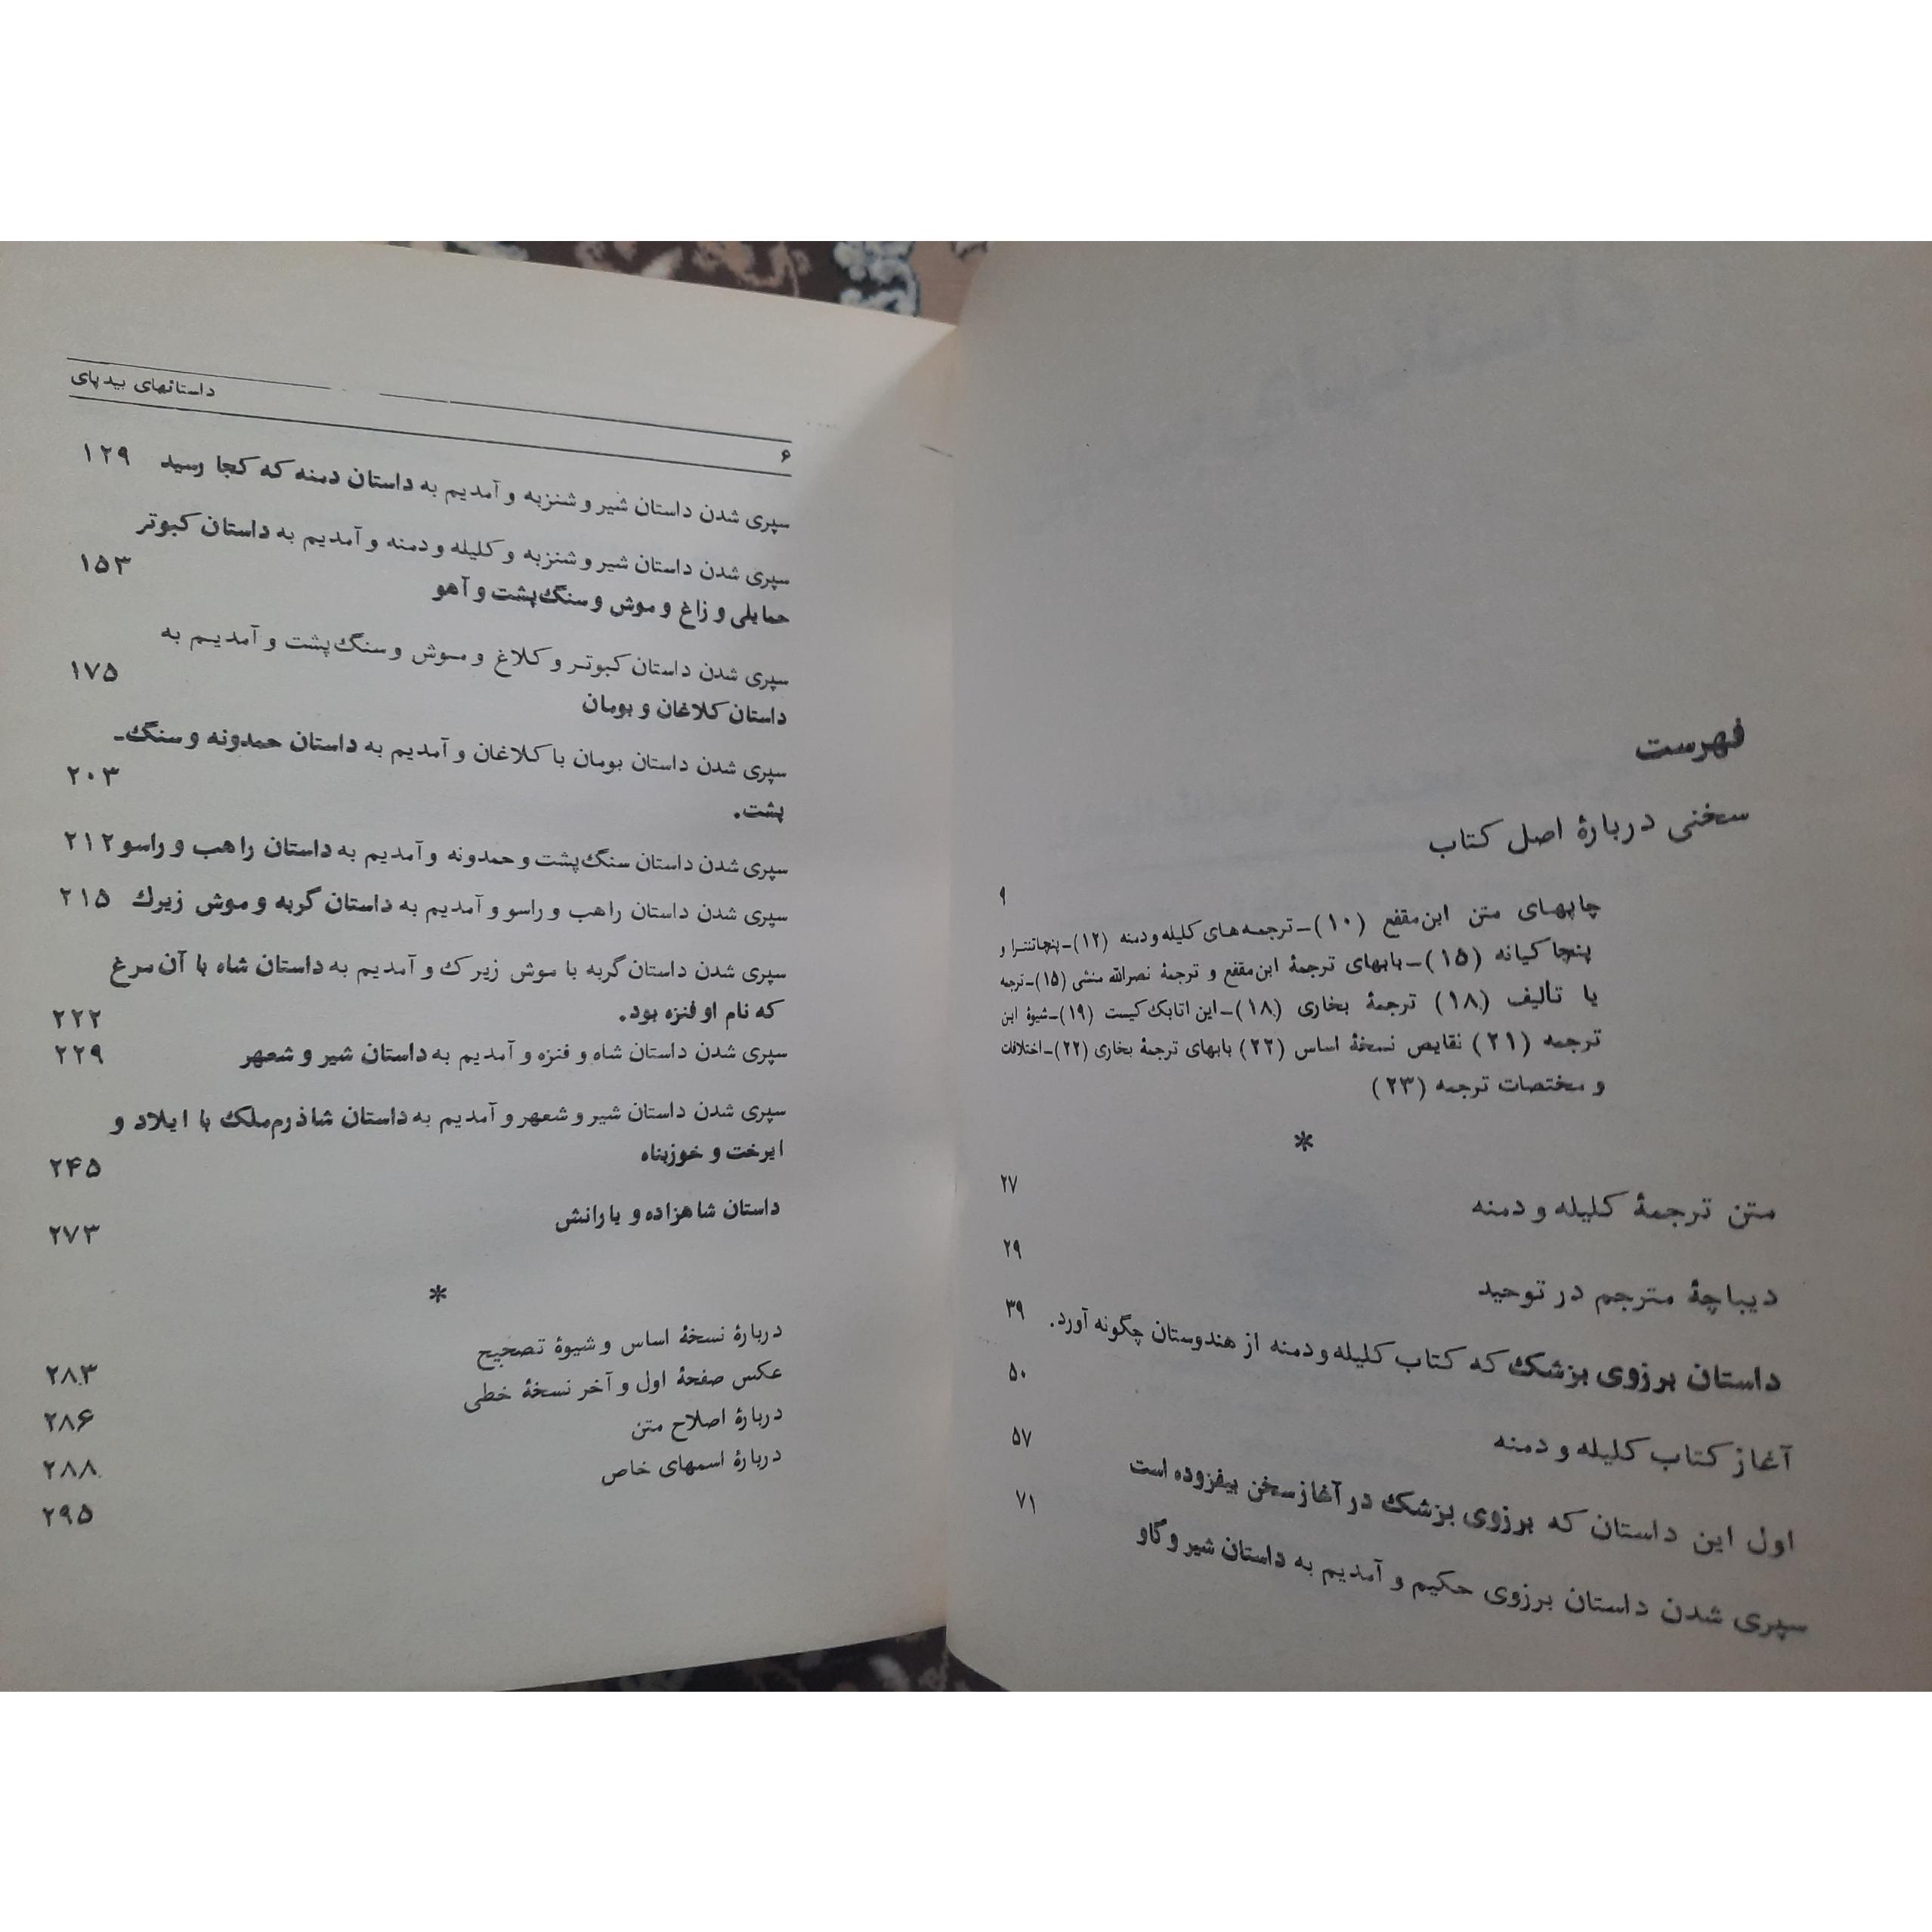 فهرست
سخنی دربارهٔ اصل کتاب ۹
چاپهای متن ابن‌مقفع (۱۰)ـ ترجمه‌های کلیله و دمنه (۱۲)ـ پنچاتنترا و
پنجاکیانه (۱۵)ـ بابهای ترجمهٔ ابن‌مقفع و ترجمهٔ نصرالله منشی (۱۵)ـ ترجمه
یا تألیف (۱۸) ترجمهٔ بخاری (۱۸)ـ این اتابک کیست (۱۹)ـ شیوهٔ این
ترجمه (۲۱) نقایص نسخهٔ اساس (۲۲) بابهای ترجمهٔ بخاری (۲۲)ـ اختلافت
و مختصات ترجمه (۲۳)
*
متن ترجمهٔ کلیله و دمنه ۲۷
دیباچهٔ مترجم در توحید ۲۹
داستان برزوی بزشک که کتاب کلیله و دمنه از هندوستان چگونه آورد. ۳۹
آغاز کتاب کلیله و دمنه ۵۰
اول این داستان که برزوی بزشک در آغاز سخن بیفزوده است ۵۷
سپری شدن داستان برزوی حکیم و آمدیم به داستان شیر و گاو ۷۱
۶ داستانهای بیدپای
سپری شدن داستان شیر و شنزبه و آمدیم به داستان دمنه که کجا رسید ۱۲۹
سپری شدن داستان شیر و شنزبه و کلیله و دمنه و آمدیم به داستان کبوتر
حمایلی و زاغ و موش و سنگ‌پشت و آهو ۱۵۳
سپری شدن داستان کبوتر و کلاغ و موش و سنگ‌پشت و آمدیم به
داستان کلاغان و بومان ۱۷۵
سپری شدن داستان بومان با کلاغان و آمدیم به داستان حمدونه و سنگ‌ـ
پشت. ۲۰۳
سپری شدن داستان سنگ‌پشت و حمدونه و آمدیم به داستان راهب و راسو ۲۱۲
سپری شدن داستان راهب و راسو و آمدیم به داستان گربه و موش زیرک ۲۱۵
سپری شدن داستان گربه با موش زیرک و آمدیم به داستان شاه با آن مرغ
که نام او فنزه بود. ۲۲۲
سپری شدن داستان شاه و فنزه و آمدیم به داستان شیر و شعهر ۲۲۹
سپری شدن داستان شیر و شعهر و آمدیم به داستان شاذرم‌ملک با ایلاد و
ایرخت و خوزبناه ۲۴۵
داستان شاهزاده و یارانش ۲۷۳
*
دربارهٔ نسخهٔ اساس و شیوهٔ تصحیح ۲۸۳
عکس صفحهٔ اول و آخر نسخهٔ خطی ۲۸۶
دربارهٔ اصلاح متن ۲۸۸
دربارهٔ اسمهای خاص ۲۹۵